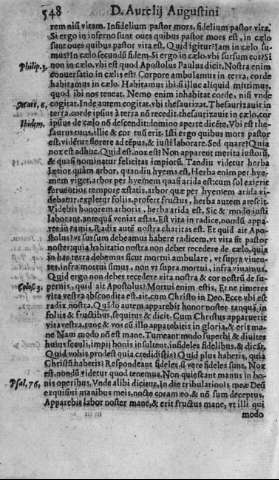 548 D. Aurelij Augustini
rem nisi vitam. Infidelium pastor mors, fidelium pastor vita.
Si ergo in inferno sunt oues quibus pastor mors est, in cælo
sunt oues quibus pastor vita est. Quid igitur? Iam in cælo su-
mus? In cælo secundùm fidem. Si ergo in cælo, vbi sursum cor? Si
Philip. 3. non in cælo, vbi est quod Apostolus Paulus dicit, Nostra enim
conuersatio in cælis est? Corpore ambulamus in terra, corde
habitamus in cælo. Habitamus ibi si illuc aliquid mittimus,
quod ibi nos teneat. Nemo enim inhabitat corde, nisi vnde
Matt. 6. cogitat. Inde autem cogitat, vbi thesaurizat. Thesaurizauit in
terra, corde ipsius à terra nō recedit. thesaurizauit in cælo, cor
Ibidem. ipsius de cælo nō descendit: domino aperte dicēte, Vbi est the-
saurus tuus, illic & cor tuū erit.
est, videtur florere ad tēpus, & iusti laborare. Sed quare? Quia
nox est adhuc. Quid est, nox est? Non apparent merita iustorū,
& quasi nominatur felicitas impiorū. Tamdiu videtur herba
lætior quàm arbor, quandiu hyems est. Herba enim per hye-
mem viget, arbor per hyemem quasi arida est: cum sol exierit
feruentiore tempore æstatis, arbor que per hyemem arida vi-
debatur, expletur folijs, profert fructus, herba autem arescit.
Videbis honorem arboris, herba arida est. Sic & modo iusti
laborant, antequā veniat æstas. Est vita in radice, nondū appa-
ret in ramis. Radix autē nostra charitas est. Et quid ait Apo-
stolus?
noster, quia habitatio nostra non debet recedere de cælo, quia
in hac terra debemus sicut mortui ambulare, vt supra viuen-
tes, infra mortui simus, non vt supra mortui, infra viuamus.
Quid ergo non debet recedere vita nostra & cor nostrū de su-
Coloss. 3. pernis, quid ait Apostolus? Mortui enim estis, Et ne timeres
vita vestra abscondita est, ait, cum Christo in Deo. Ecce vbi est
radix nostra. Quādo autem apparebit honor noster tanquā in
folijs & fructibus, sequitur & dicit. Cum Christus apparuerit
vita vestra, tunc & vos cū illo apparebitis in gloria, & erit ma-
ne. Nam modo nō est mane. Tumeant modo superbi & diuites
huius seculi, impij bonis insultent, infideles fidelibus, & dicāt,
Quid vobis prodest quia credidistis? Quid plus habetis, quia
Christū habetis? Respondeant fideles si verè fideles sunt, Nox
est, nondū videtur quod tenemus. Non quiescant manus in bo-
Psal. 76. nis operibus. Vnde alibi dicitur, In die tribulatiōis meæ Deū
exquisiui manibus meis, nocte coram eo, & nō sum deceptus.
Apparebit labor noster mane, & erit fructus mane, vt illi qui
modo